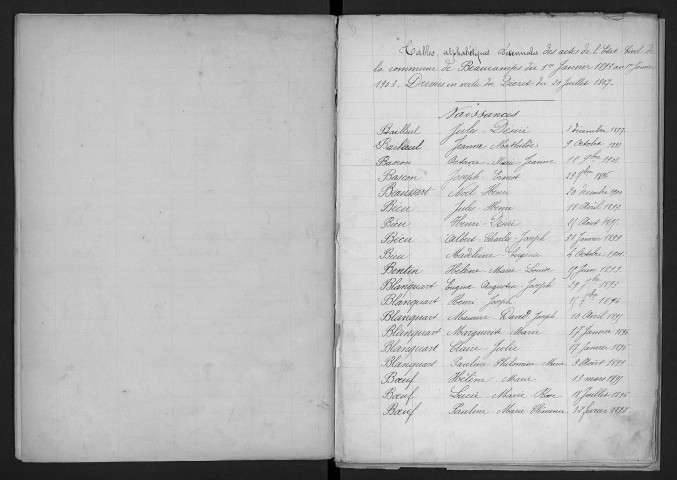 Tables alphabétiques décennales des actes de l'Etat Civil de
la commune de Beaucamps du 1er Janvier 1893 au 1er Janvier
1903. Dressées en vertu du Décret du 20 Juillet 1807.
Naissances
Bailleul Jules Désiré 1 Décembre 1897
Bailleul Jeanne Mathilde 9 Octobre
Bascou Octavie Marie Jeanne 9bre 1901
Bascou Joseph Ernest 29 1896
Beaussart Noël Henri 20 Décembre 1900
Bécu Jules Henri 18 Avril 1893
Bécu Henri Désiré Août 1897
Bécu Albert Charles Joseph Janvier 1899
Bécu Madeleine Eugénie 4 Octobre 1901
Bentin Hélène Marie Louise Juin 1899
Blanquart Eugène Augustin Joseph 29 1893
Blanquart Henri Joseph 1894
Blanquart Maurice David Joseph 10 Avril 1897
Blanquart Marguerite Marie 17 Janvier 1896
Blanquart Claire Julie 17 Janvier 1895
Blanquart Pauline Philomène Marie 3 Août 1899
Bœuf Hélène Marie 13 mars 1897
Bœuf Lucie Marie Rose 18 Juillet 1895
Bœuf Pauline Marie Clémence 22 février 1893